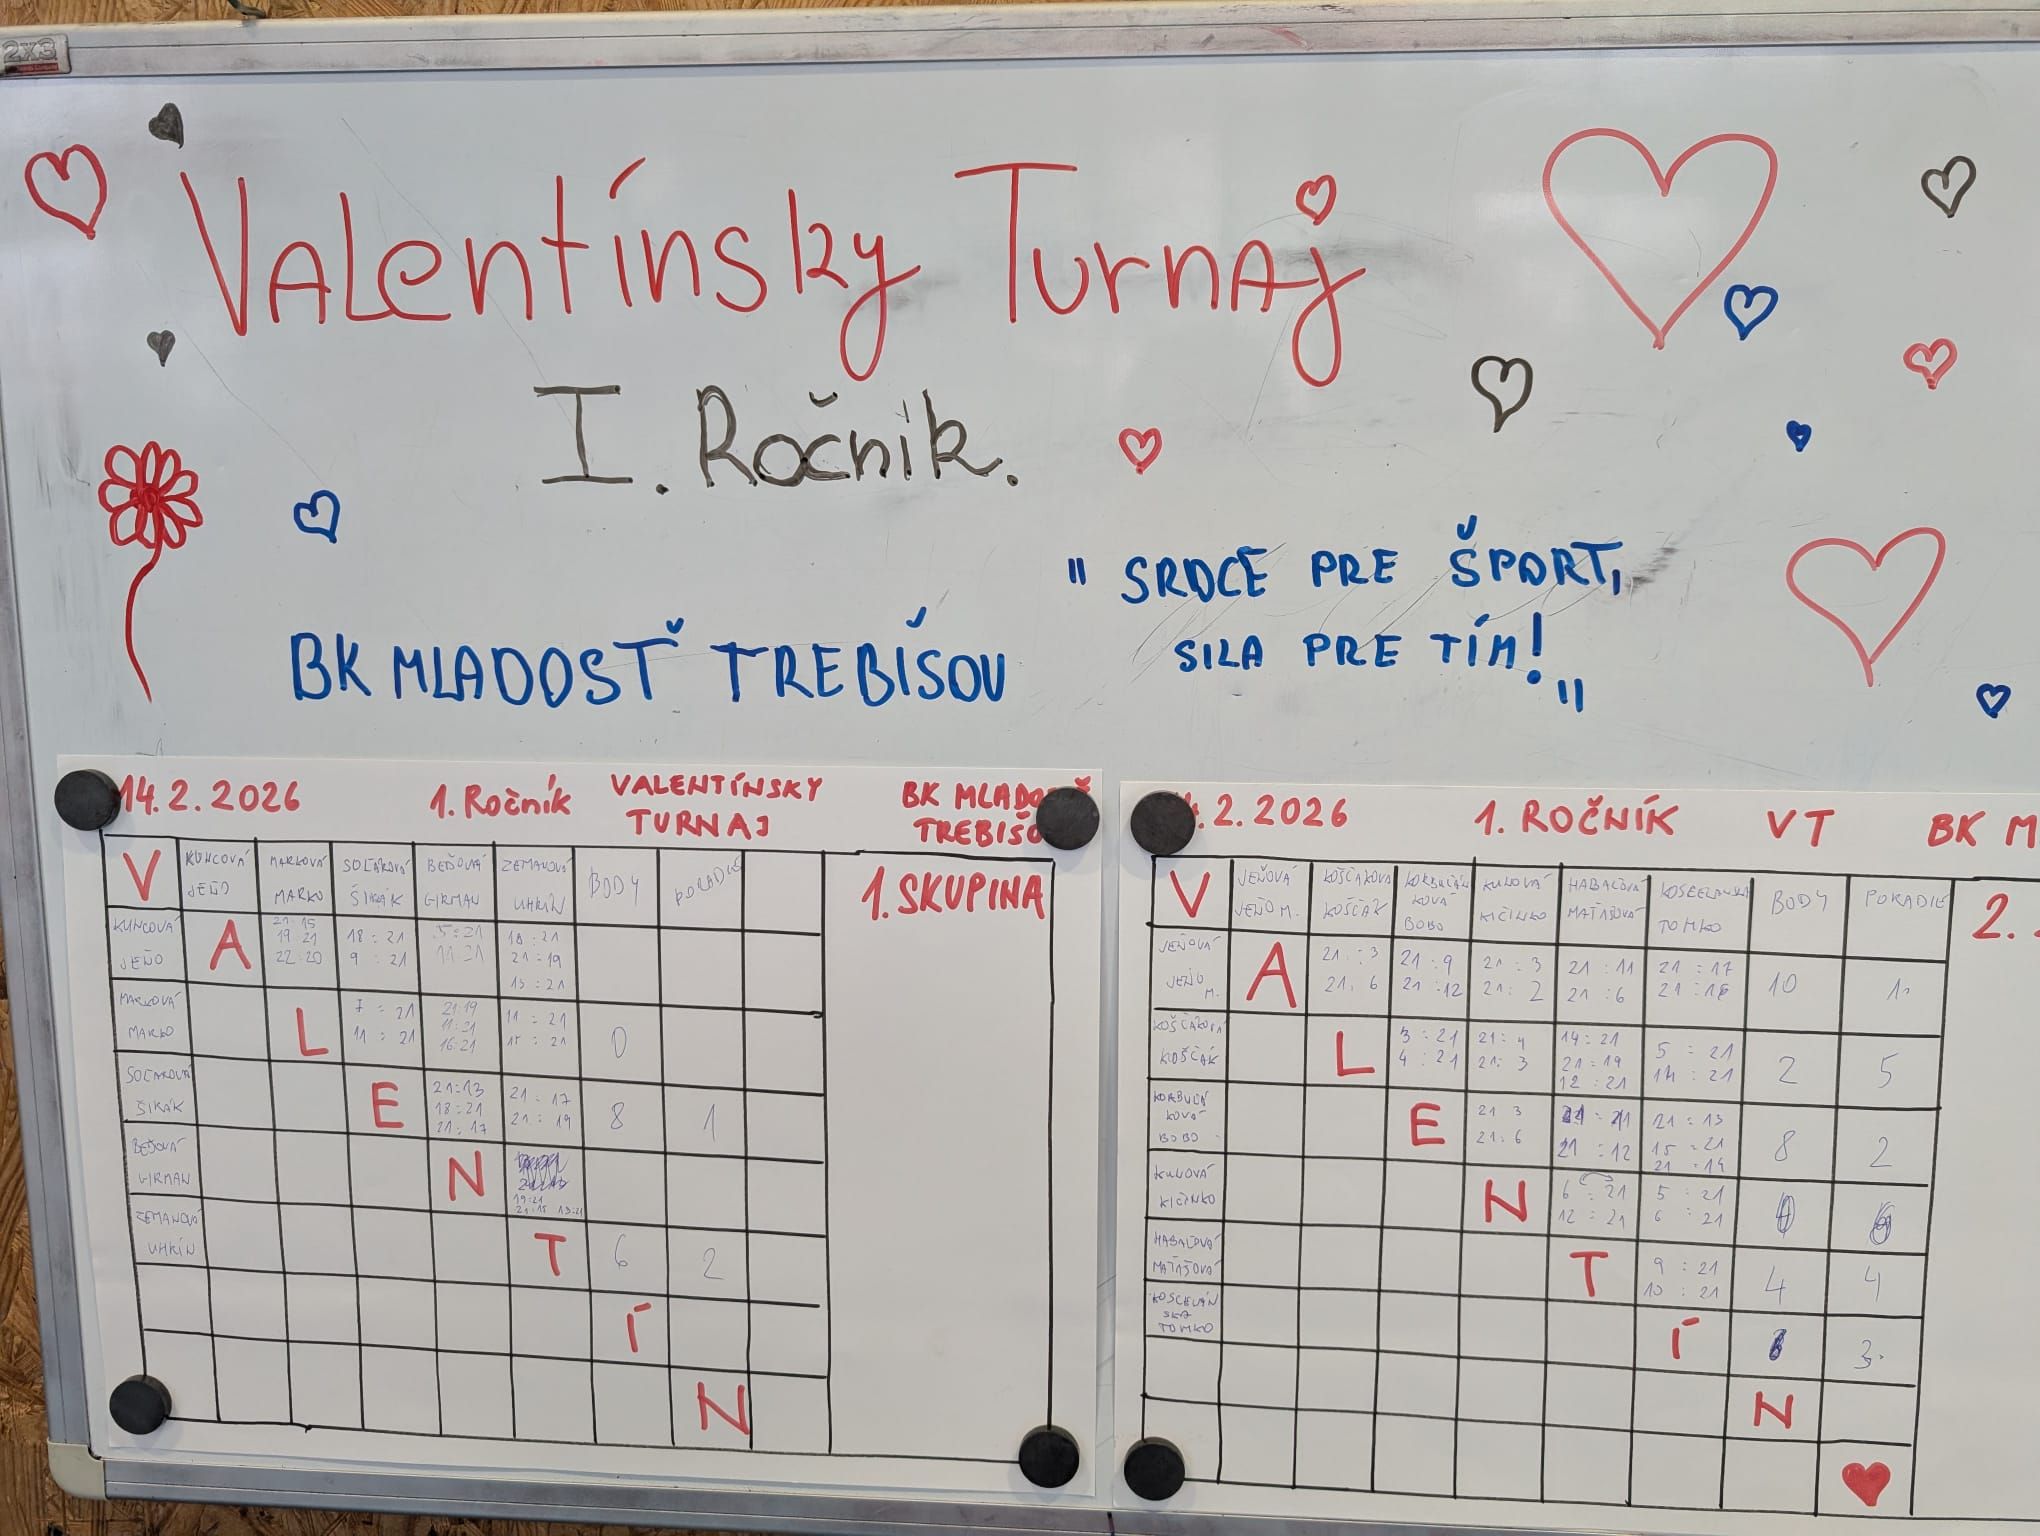 2x3
Valentínsky Turnaj
I. Ročník.
" SRDCE PRE ŠPORT,
SILA PRE TÍM! "
BK MLADOSŤ TREBIŠOV
14.2.2026 1. Ročník VALENTÍNSKY TURNAJ BK MLADOSŤ
TREBIŠO
V KUNCOVÁ JEŇO MARKOVÁ MARKO ŠIRÁK GIRMAN ZEMANOVÁ UHRÍN BODY PORADIE
1. SKUPINA
KUNCOVÁ JEŇO A 21:15 19:21 22:20 18:21 9:21 18:21 21:19 13:21
MARKOVÁ MARKO L 7:21 11:21 21:19 11:21 16:21 11:21 15:21 0
ŠIRÁK E 21:13 18:21 21:17 21:17 21:19 8 1
GIRMAN N 19:21 21:15 13:21
ZEMANOVÁ UHRÍN T 6 2
Í
N
.2.2026 1. ROČNÍK VT BK M
V JEŇOVÁ JEŇO M. KOŠČÁKOVÁ KOŠČÁK BOBO KIČINKO TOMKO BODY PORADIE
2.
JEŇOVÁ JEŇO M. A 21:3 21:6 21:9 21:12 21:3 21:2 21:11 21:6 21:17 10 1.
KOŠČÁKOVÁ KOŠČÁK L 3:21 4:21 21:4 21:3 14:21 21:19 12:21 5:21 14:21 2 5
BOBO E 21 3 21:6 21:12 21:13 15:21 21:19 8 2
KIČINKO N 6:21 12:21 5:21 6:21
T 9:21 10:21 4 4
TOMKO Í 3.
N